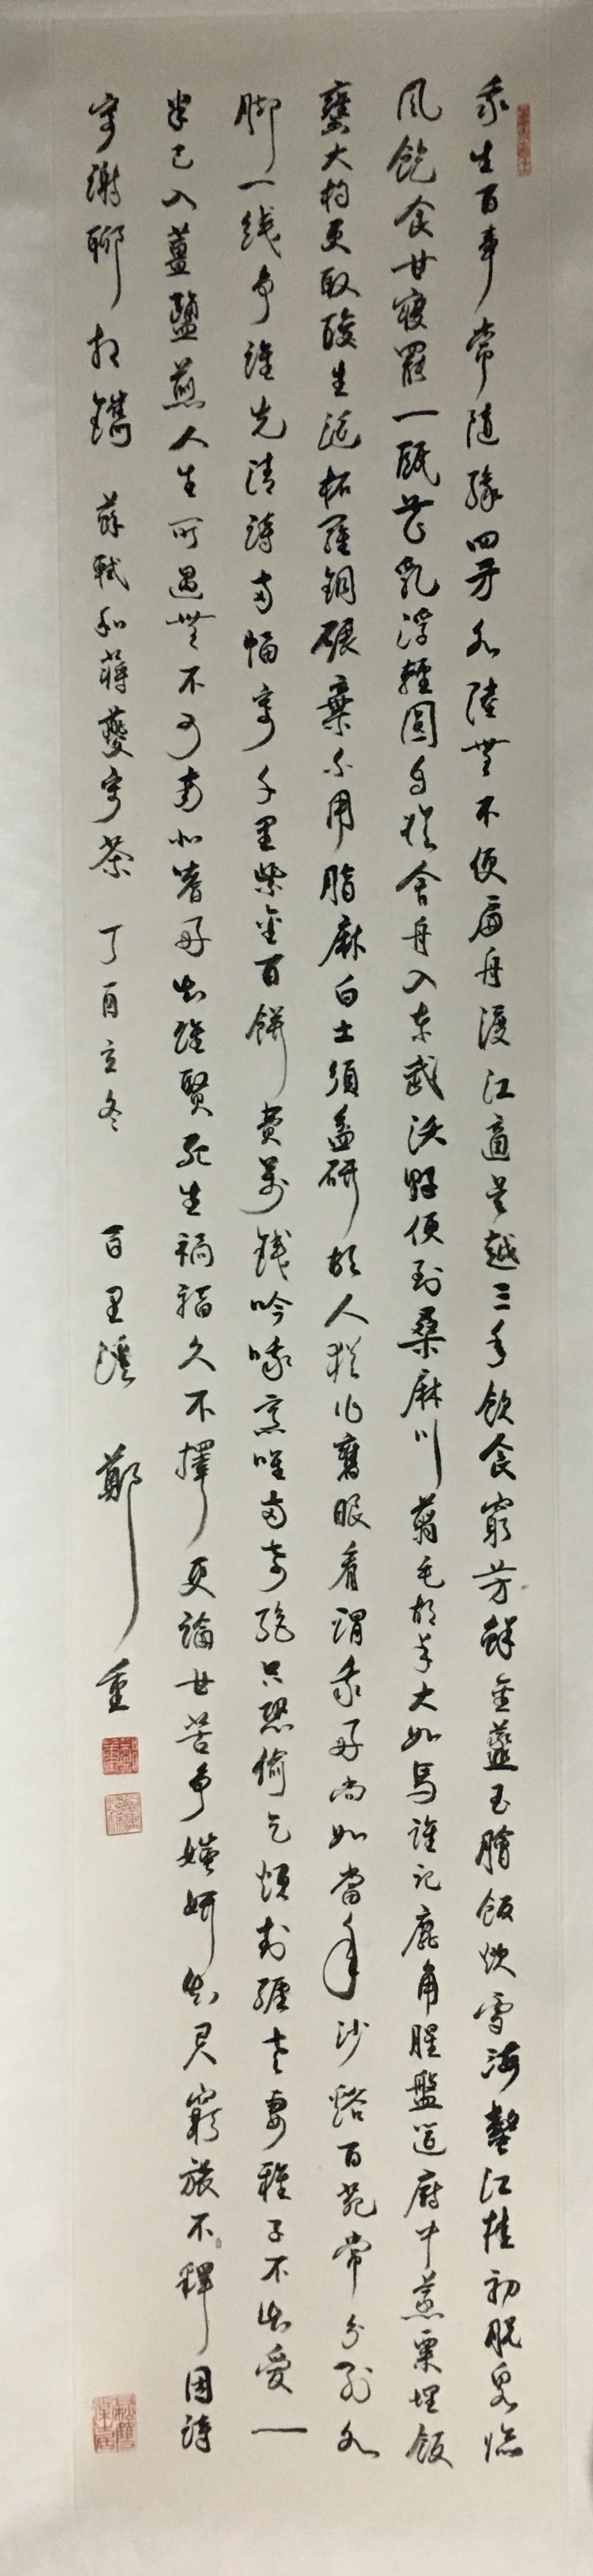 我生百事常随緣四方水陸無不便扁舟渡江適吳越三年飲食窮芳鮮金虀玉膾飯炊雪海螯江柱初脫泉臨
風飽食甘寢罷一甌花乳浮輕圓自從舍舟入東武沃野便到桑麻川剪毛胡羊大如馬誰記鹿角腥盤筵廚中蒸粟埋飯
甕大杓更取酸生涎柘羅銅碾棄不用脂麻白土須盆研故人猶作舊眼看謂我好尚如當年沙谿北苑強分別水
脚一线爭誰先清詩兩幅寄千里紫金百餅費萬錢吟哦烹噍兩奇絶只恐偷乞煩封纏老妻稚子不知愛一
半已入薑鹽煎人生所遇無不可南北嗜好知誰賢死生禍福久不擇更論甘苦爭媸妍知君窮旅不自釋因詩
寄謝聊相鐫 蘇軾和蔣夔寄茶 丁酉立冬 百里溪 鄭重